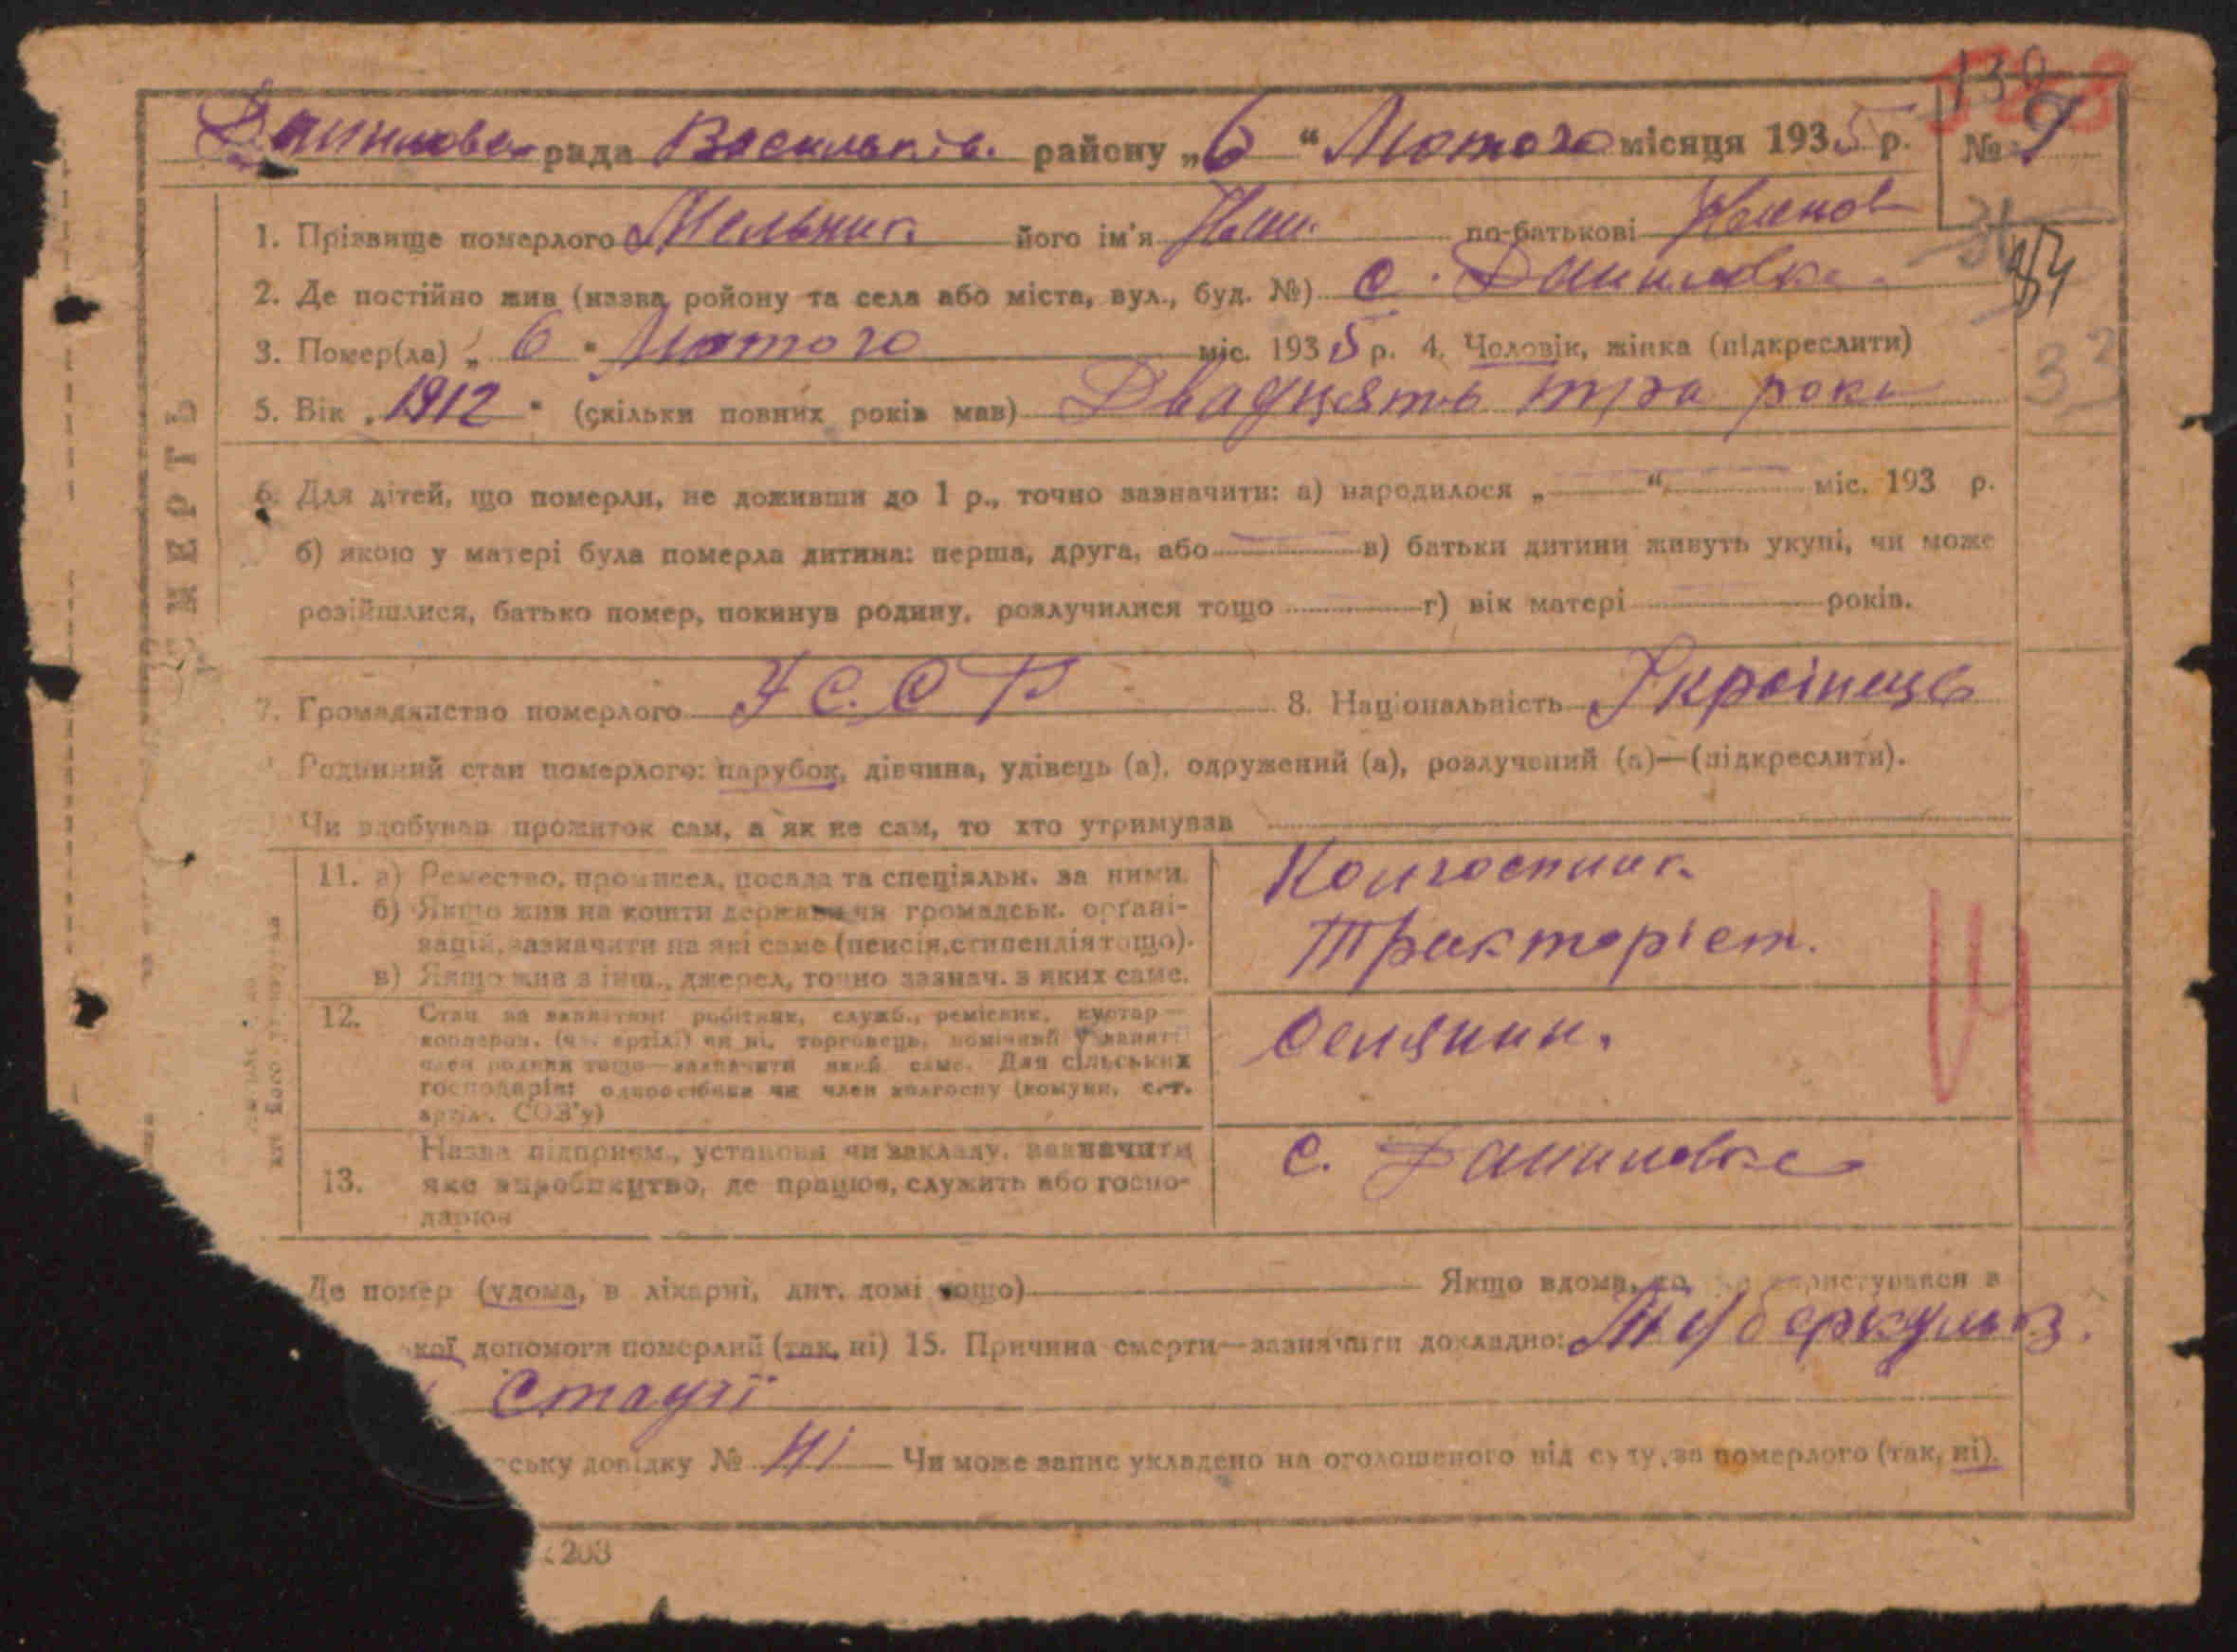 138
Данилова рада Васильків. району „6“ Лютого місяця 1935 р. № 9
1. Прізвище померлого Мельник його ім'я Іван по-батькові Іванов
2. Де постійно жив (назва ройону та села або міста, вул., буд. №) с. Даниловка
84
3. Помер(ла) „6“ Лютого міс. 1935 р. 4. Чоловік, жінка (підкреслити)
33
5. Вік „1912“ (скільки повних років мав) Двадцять тра роки
СМЕРТЬ
6. Для дітей, що померли, не доживши до 1 р., точно зазначити: а) народилося „ “ міс. 193 р.
б) якою у матері була померла дитина: перша, друга, або в) батьки дитини живуть укупі, чи може
розійшлися, батько помер, покинув родину, розлучилися тощо г) вік матері років.
7. Громадянство померлого У С. С Р 8. Національність Українець
Родинний стан померлого: парубок, дівчина, удівець (а), одружений (а), розлучений (а)—(підкреслити).
Чи здобував прожиток сам, а як не сам, то хто утримував
11. а) Ремество, промисел, посада та спеціяльн. за ними. Колгоспник.
б) Якщо жив на кошти держави чи громадськ. органі-
зацій, зазначити на які саме (пенсія, стипендія тощо). Тракторіст.
в) Якщо жив з інш., джерел, точно зазнач. з яких саме.
12. Стан за заняттям: робітник, служб., ремісник, кустар— Селянин.
кооперов. (чл. артілі) чи ні, торговець, помічний у занятті
член родини тощо—зазначити який саме. Для сільських
господарів: одноосібник чи член колгоспу (комуни, с.-г.
артіл., СОЗ'у)
13. Назва підприєм., установи чи закладу, зазначити с. Даниловка
яке виробництво, де працює, служить або госпо-
дарює
Де помер (удома, в лікарні, дит. домі тощо) Якщо вдома, користувався в
кої допомоги померлий (так, ні) 15. Причина смерти—зазначити докладно: Туберкульоз.
Стадії
ську довідку № Ні Чи може запис укладено на оголошеного від суду, за померлого (так, ні).
203